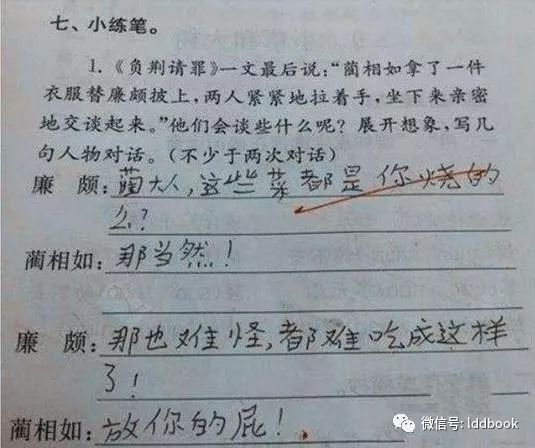 七、小练笔。
1.《负荆请罪》一文最后说：“蔺相如拿了一件
衣服替廉颇披上，两人紧紧地拉着手，坐下来亲密
地交谈起来。”他们会谈些什么呢？展开想象，写几
句人物对话。（不少于两次对话）
廉　颇：蔺大人，这些菜都是你烧的
么？
蔺相如：那当然！
廉　颇：那也难怪，都难吃成这样
了！
蔺相如：放你的屁！
微信号: lddbook